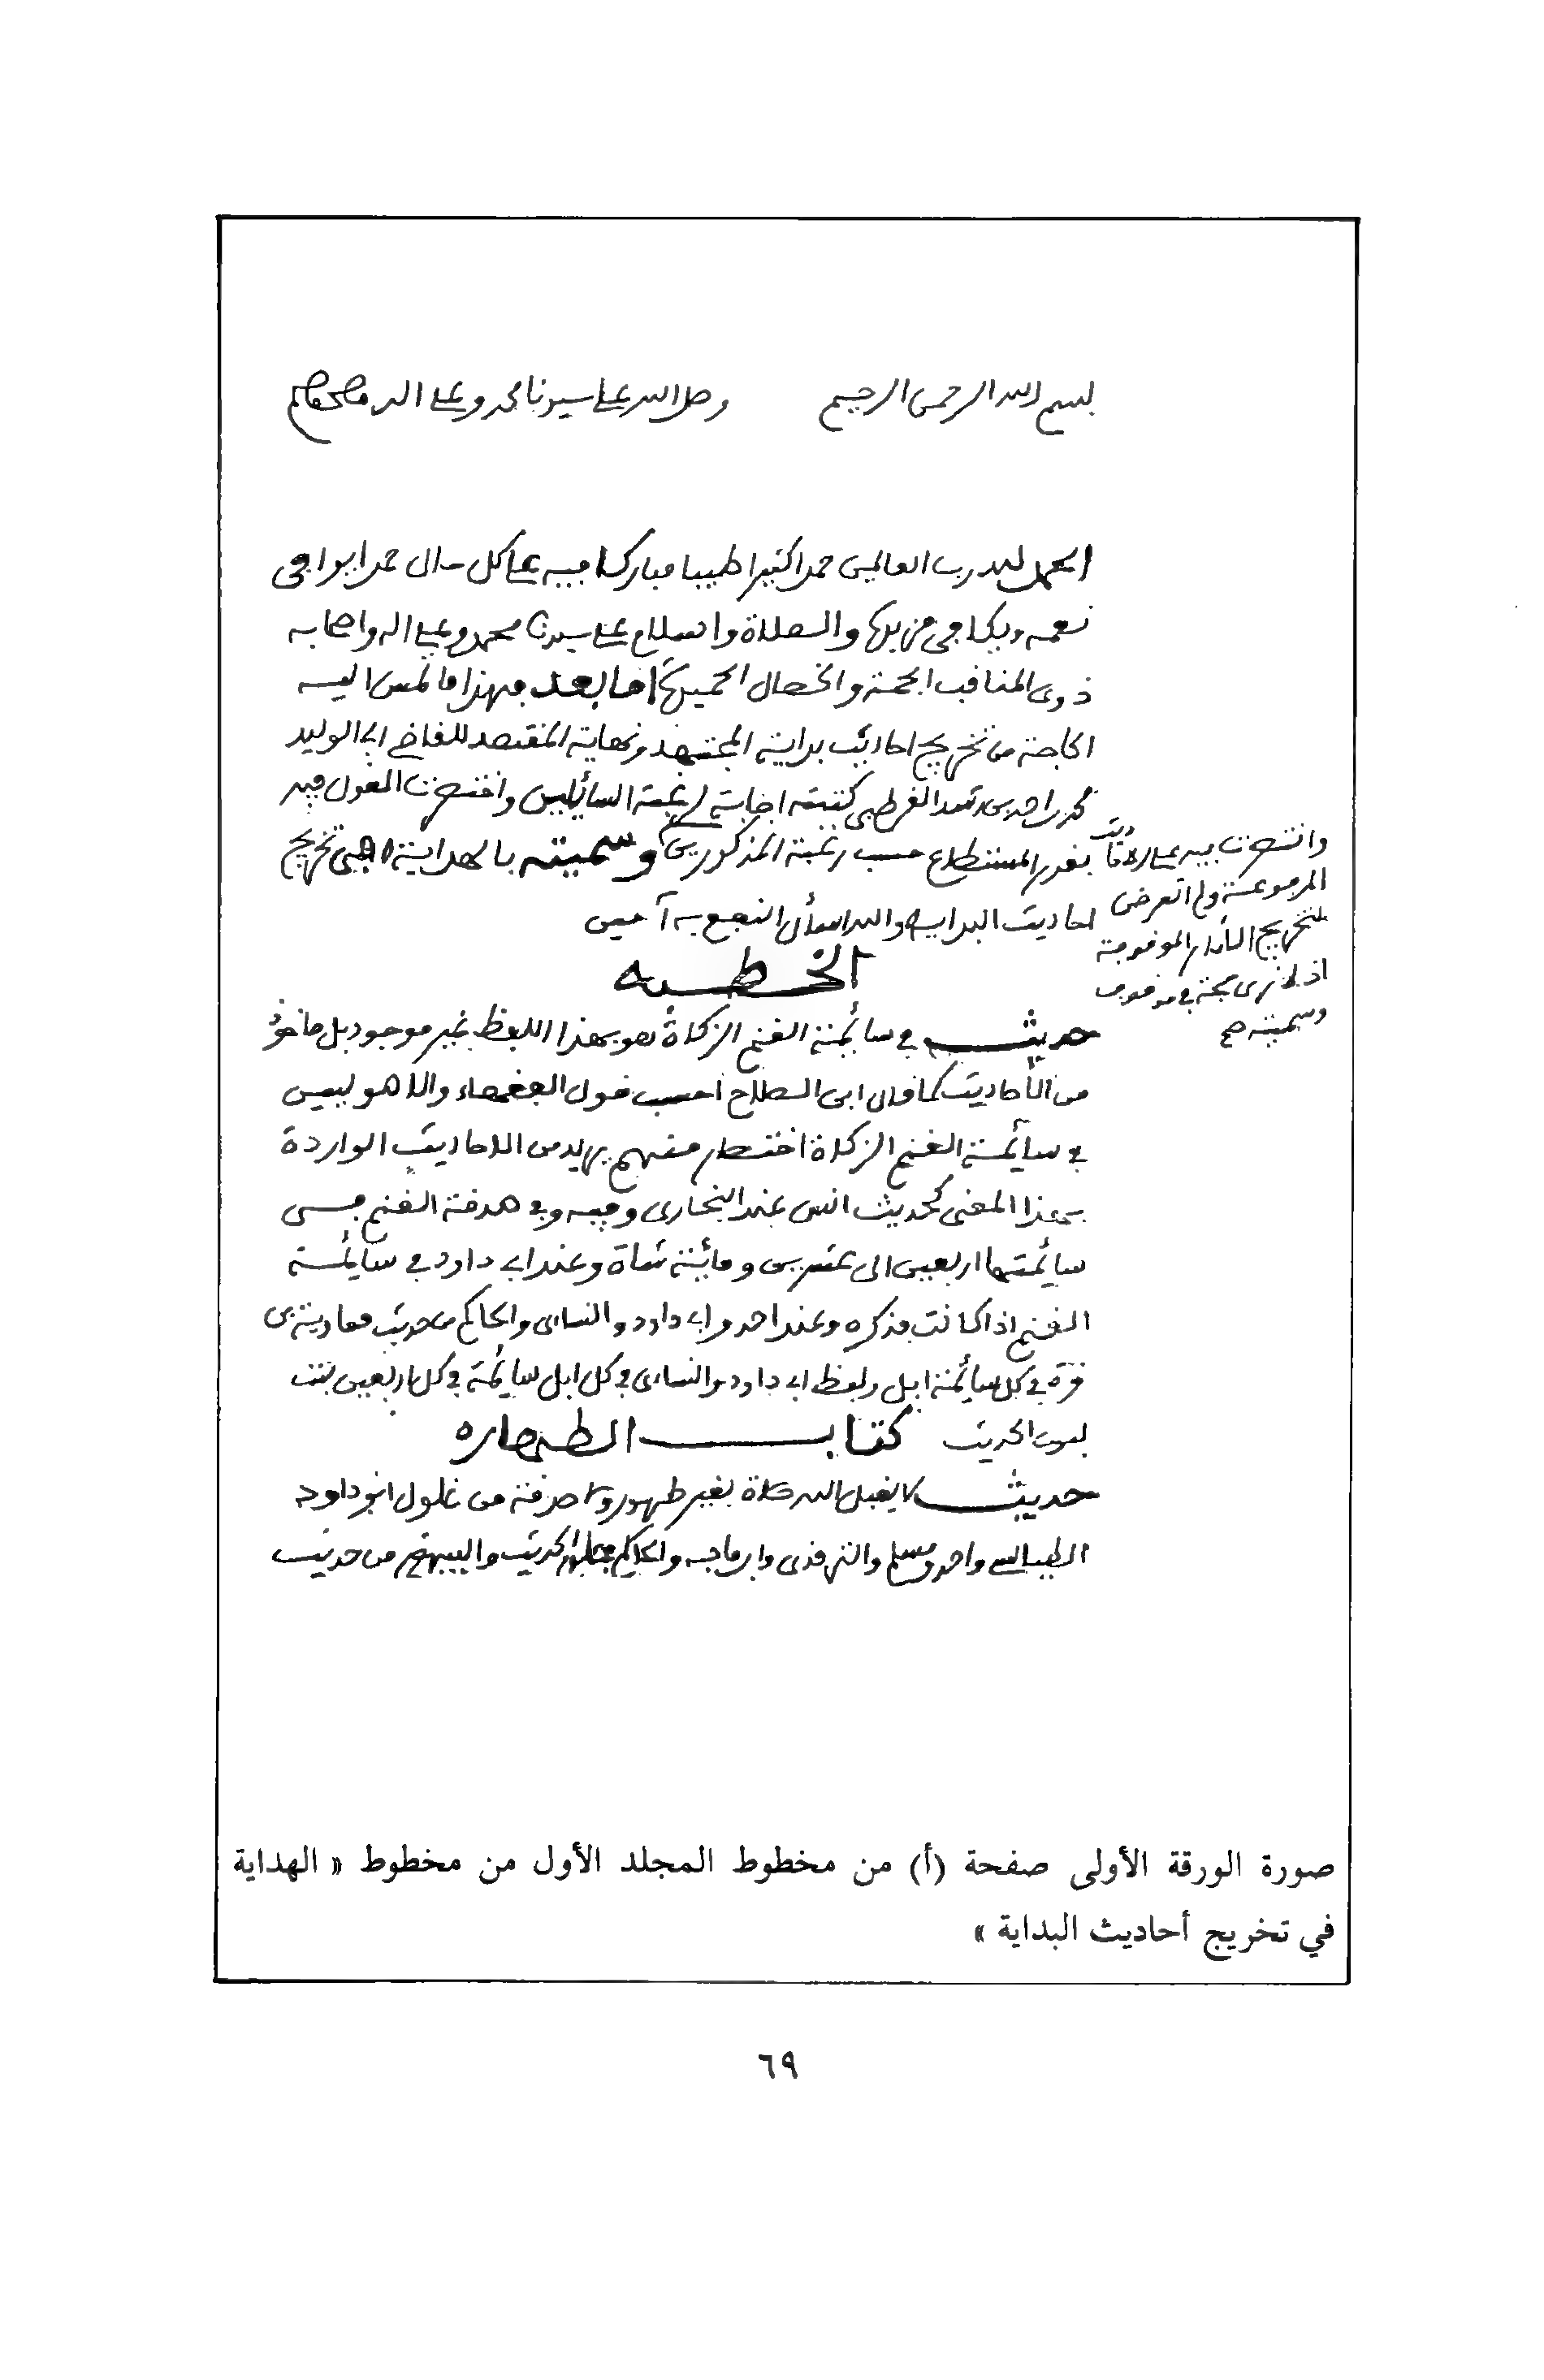 بسم الله الرحمن الرحيم وصلى الله على سيدنا محمد وعلى اله وصحبه
الحمد لله رب العالمين حمدا كثيرا طيبا مباركا فيه على كل حال حمدا يوافى
نعمه ويكافى مزيده والصلاة والسلام على سيدنا محمد وعلى اله واصحابه
ذوى المناقب الجمة والخصال الحميدة اما بعد فهذا ما لمس اليه
الحاجة من تخريج احاديث بداية المجتهد ونهاية المقتصد للقاضى ابى الوليد
محمد بن احمد بن رشد القرطبى كتبته اجابة لرغبة السائلين واختصرت القول فيه
بقدر المستطاع حسب رغبة المذكورين وسميته بالهداية فى تخريج
احاديث البداية والله اسأل النفع به آمين
واقتصرت فيه على الاحاديث
المرفوعة ولم اتعرض
لتخريج الآثار الموقوفة
اذ لا نرى حجة فى موقوف
وسميته صح
الخطبه
حديث فى سائمة الغنم الزكاة هو بهذا اللفظ غير موجود بل مأخوذ
من الأحاديث كما قال ابن الصلاح احسب قول الفقهاء والاصوليين
فى سائمة الغنم الزكاة اختصار منهم يريد من الاحاديث الواردة
بهذا المعنى كحديث انس عند البخارى وفيه وفى صدقة الغنم فى
سائمتها اربعين الى عشرين ومائة شاة وعند ابى داود فى سائمة
الغنم اذا كانت فذكره وعند احمد وابى داود والنساءى والحاكم من حديث معاوية بن
قرة فى كل سائمة ابل ولفظ ابى داود والنساءى فى كل ابل سائمة فى كل اربعين بنت
لبون الحديث كتاب الطهاره
حديث لا يقبل الله صلاة بغير طهور ولا صدقة من غلول ابو داود
الطيالسى واحمد ومسلم والترمذى وابن ماجه والحاكم الحديث والبيهقى من حديث
صورة الورقة الأولى صفحة (أ) من مخطوط المجلد الأول من مخطوط « الهداية
في تخريج أحاديث البداية »
٦٩